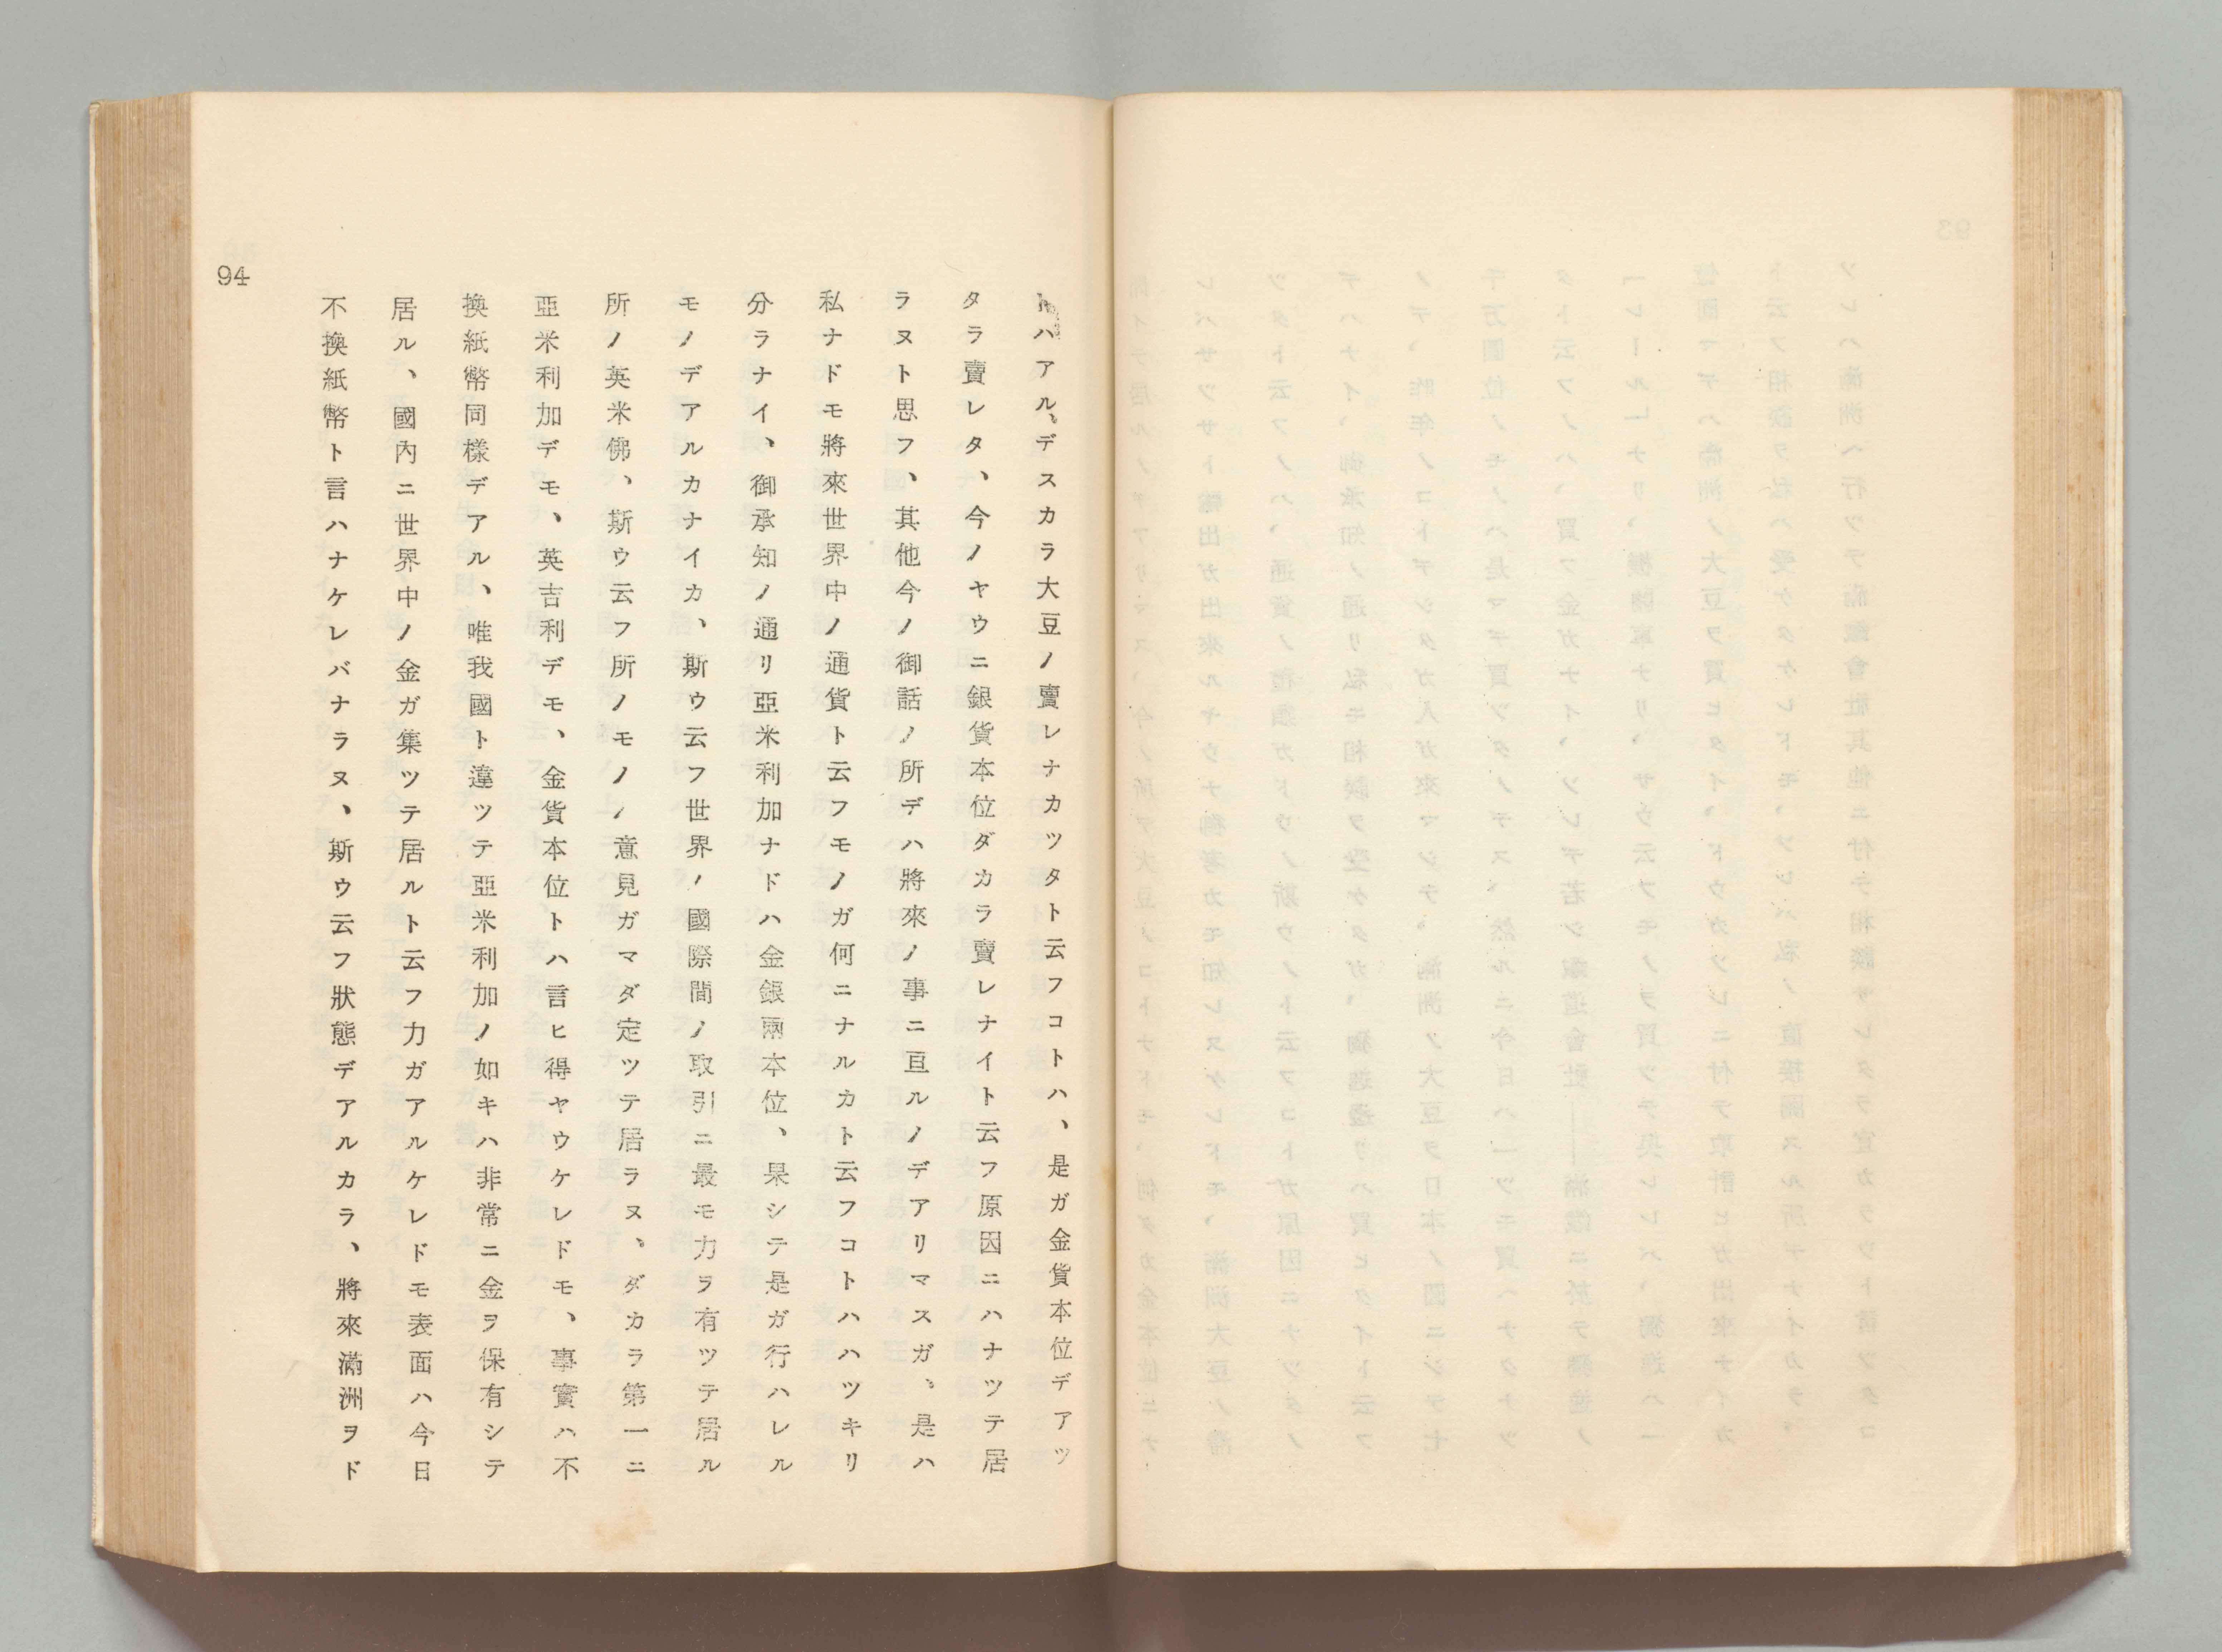 トハアル、デスカラ大豆ノ賣レナカツタト云フコトハ、是ガ金貨本位デアツ
タラ賣レタ、今ノヤウニ銀貨本位ダカラ賣レナイト云フ原因ニハナツテ居
ラヌト思フ、其他今ノ御話ノ所デハ將來ノ事ニ亘ルノデアリマスガ、是ハ
私ナドモ將來世界中ノ通貨ト云フモノガ何ニナルカト云フコトハハツキリ
分ラナイ、御承知ノ通リ亞米利加ナドハ金銀兩本位、果シテ是ガ行ハレル
モノデアルカナイカ、斯ウ云フ世界ノ國際間ノ取引ニ最モ力ヲ有ツテ居ル
所ノ英米佛、斯ウ云フ所ノモノノ意見ガマダ定ツテ居ラヌ、ダカラ第一ニ
亞米利加デモ、英吉利デモ、金貨本位トハ言ヒ得ヤウケレドモ、事實ハ不
換紙幣同樣デアル、唯我國ト違ツテ亞米利加ノ如キハ非常ニ金ヲ保有シテ
居ル、國內ニ世界中ノ金ガ集ツテ居ルト云フ力ガアルケレドモ表面ハ今日
不換紙幣ト言ハナケレバナラヌ、斯ウ云フ狀態デアルカラ、將來滿洲ヲド
94